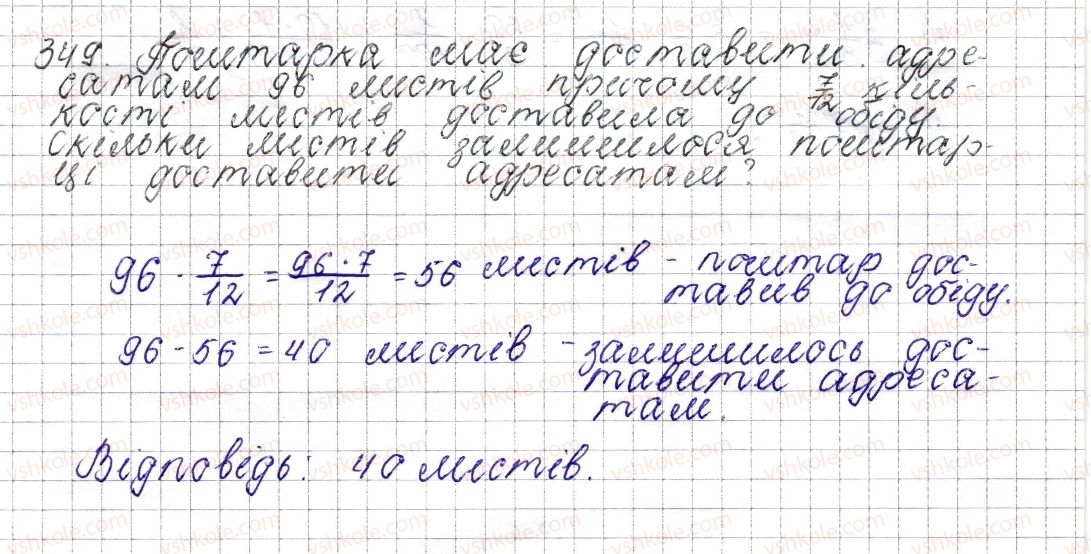 349. Поштарка має доставити адре-
сатам 96 листів причому 7/12 кіль-
кості листів доставила до обіду.
Скільки листів залишилося поштар-
ці доставити адресатам?
96 · 7/12 = 96·7/12 = 56 листів - поштар дос-
тавив до обіду.
96 - 56 = 40 листів - залишилось дос-
тавити адреса-
там.
Відповідь: 40 листів.